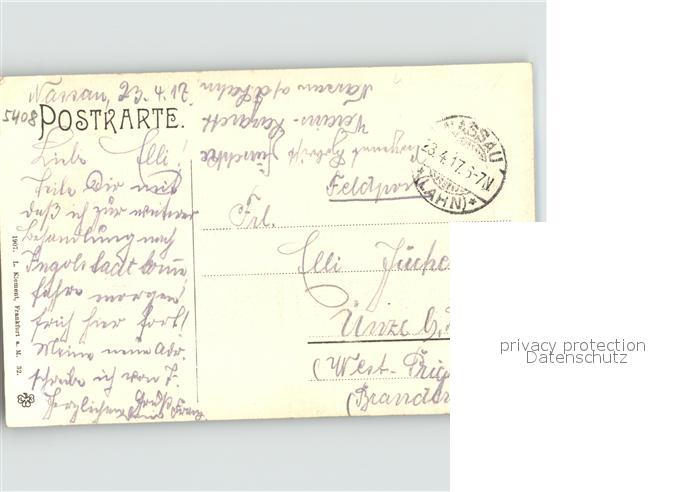 Nassau, 23.4.17.
5408
POSTKARTE.
Liebe Elli!
Teile Dir mit
daß ich zur weiterer
Behandlung nach
Ingolstadt komme
fahre morgen
früh hier fort!
Meine neue Adr.
schreibe ich von J.
Herzlichen Gruß
Dein Franz
Nassau a/d Lahn
Vereins-Lazarett
Feldpost
NASSAU
23.4.17.6-7N
*(LAHN)*
Frl.
Elli
Ünze
(West-Prig
(Brandenb
1907. L. Klement, Frankfurt a. M. 32.
privacy protection
Datenschutz